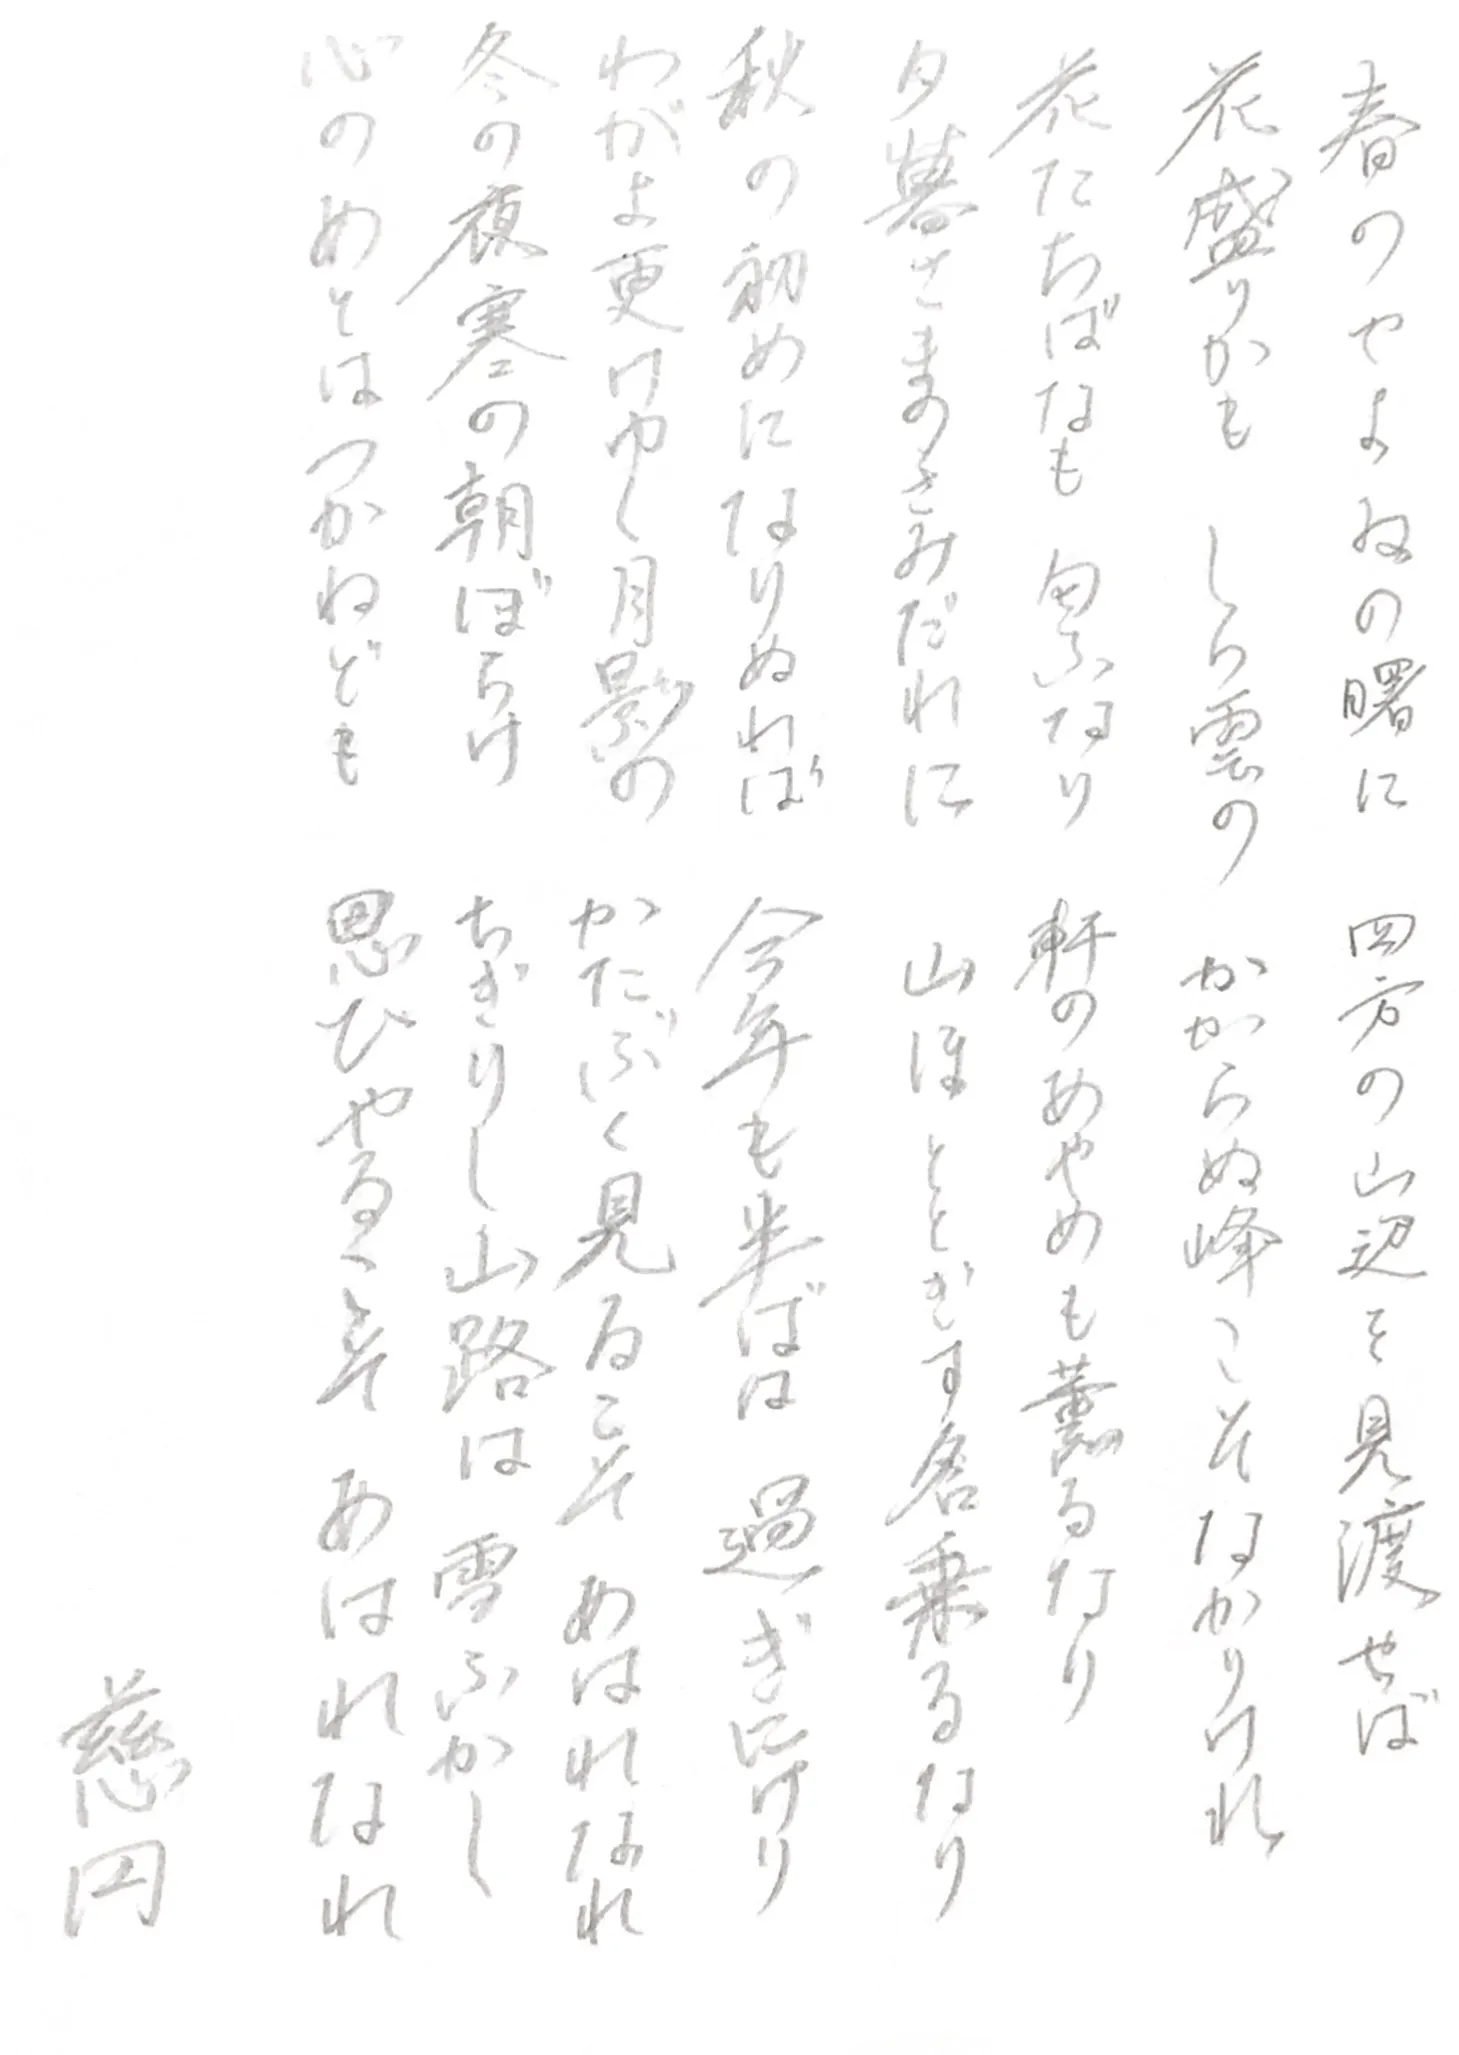 春のやよゐの曙に 四方の山辺を見渡せば
花盛りかも しら雲の かからぬ峰こそなかりけれ
花たちばなも 匂ふなり 軒のあやめも薫るなり
夕暮さまのさみだれに 山ほととぎす名乗るなり
秋の初めになりぬれば 今年も半ばは 過ぎにけり
わがよ更けゆく月影の かたぶく見るこそ あはれなれ
冬の夜寒の朝ぼらけ ちぎりし山路は 雪ふかし
心のあとはつかねども 思ひやるこそ あはれなれ
慈円